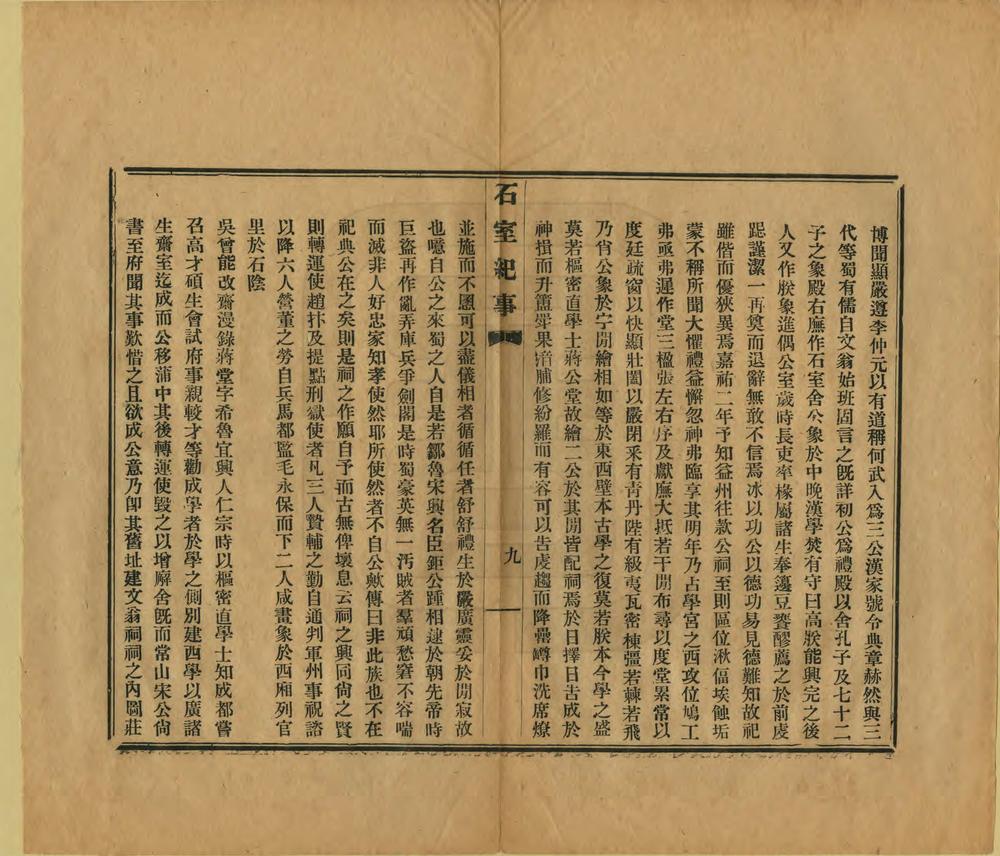 博聞顯嚴遵李仲元以有道稱何武入爲三公漢家號令典章赫然與三
代等蜀有儒自文翁始班固言之旣詳初公爲禮殿以舍孔子及七十二
子之象殿右廡作石室舍公象於中晚漢學焚有守曰高朕能興完之後
人又作朕象進偶公室歲時長吏率椽屬諸生奉籩豆饔醪薦之於前虔
跽謹潔一再奠而退辭無敢不信焉冰以功公以德功易見德難知故祀
雖偕而優狹異焉嘉祐二年予知益州往款公祠至則區位湫偪埃蝕垢
蒙不稱所聞大懼禮益懈忽神弗臨享其明年乃占學宮之西攻位鳩工
弗亟弗遲作堂三楹張左右序及獻廡大抵若干間布尋以度堂累常以
度廷疏窗以快顯壯闔以嚴閉采有靑丹陛有級夷瓦密棟彊若棘若飛
乃肖公象於宁間繪相如等於東西壁本古學之復莫若朕本今學之盛
莫若樞密直學士蔣公堂故繪二公於其間皆配祠焉於日擇日吉成於
神揖而升簠斝果 脯修紛羅而有容可以告虔趨而降罍罇巾洗席燎
石室紀事
九
並施而不慁可以盡儀相者循循任者舒舒禮生於嚴廣靈妥於閒寂故
也噫自公之來蜀之人自是若鄒魯宋興名臣鉅公踵相逮於朝先帝時
巨盜再作亂弄庫兵爭劍閣是時蜀豪英無一汚賊者羣頑愁窘不容喘
而滅非人好忠家知孝使然耶所使然者不自公歟傳曰非此族也不在
祀典公在之矣則是祠之作願自予而古無俾壞息云祠之興同尙之賢
則轉運使趙抃及提點刑獄使者凡三人贊輔之勤自通判軍州事祝諮
以降六人營董之勞自兵馬都監毛永保而下二人咸畫象於西廂列官
里於石陰
吳曾能改齋漫錄蔣堂字希魯宜興人仁宗時以樞密直學士知成都嘗
召高才碩生會試府事親較才等勸成學者於學之側別建西學以廣諸
生齋室迄成而公移蒲中其後轉運使毀之以增廨舍旣而常山宋公尙
書至府聞其事歎惜之且欲成公意乃卽其舊址建文翁祠祠之內圖莊